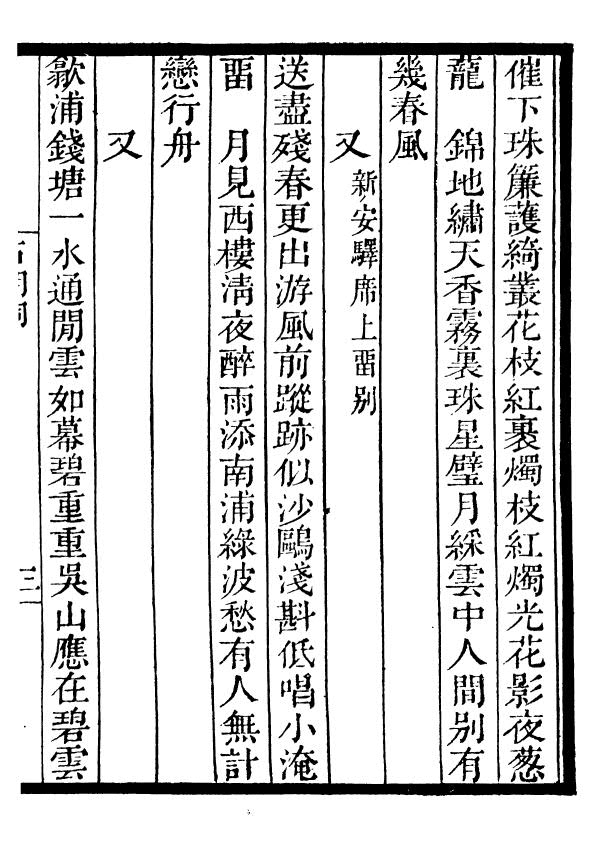 催下珠簾護綺叢花枝紅裏燭枝紅燭光花影夜葱
蘢　錦地繡天香霧裏珠星璧月綵雲中人間别有
幾春風
又新安驛席上畱别
送盡殘春更出游風前蹤跡似沙鷗淺斟低唱小淹
畱　月見西樓淸夜醉雨添南浦綠波愁有人無計
戀行舟
又
歙浦錢塘一水通閒雲如幕碧重重吳山應在碧雲
三